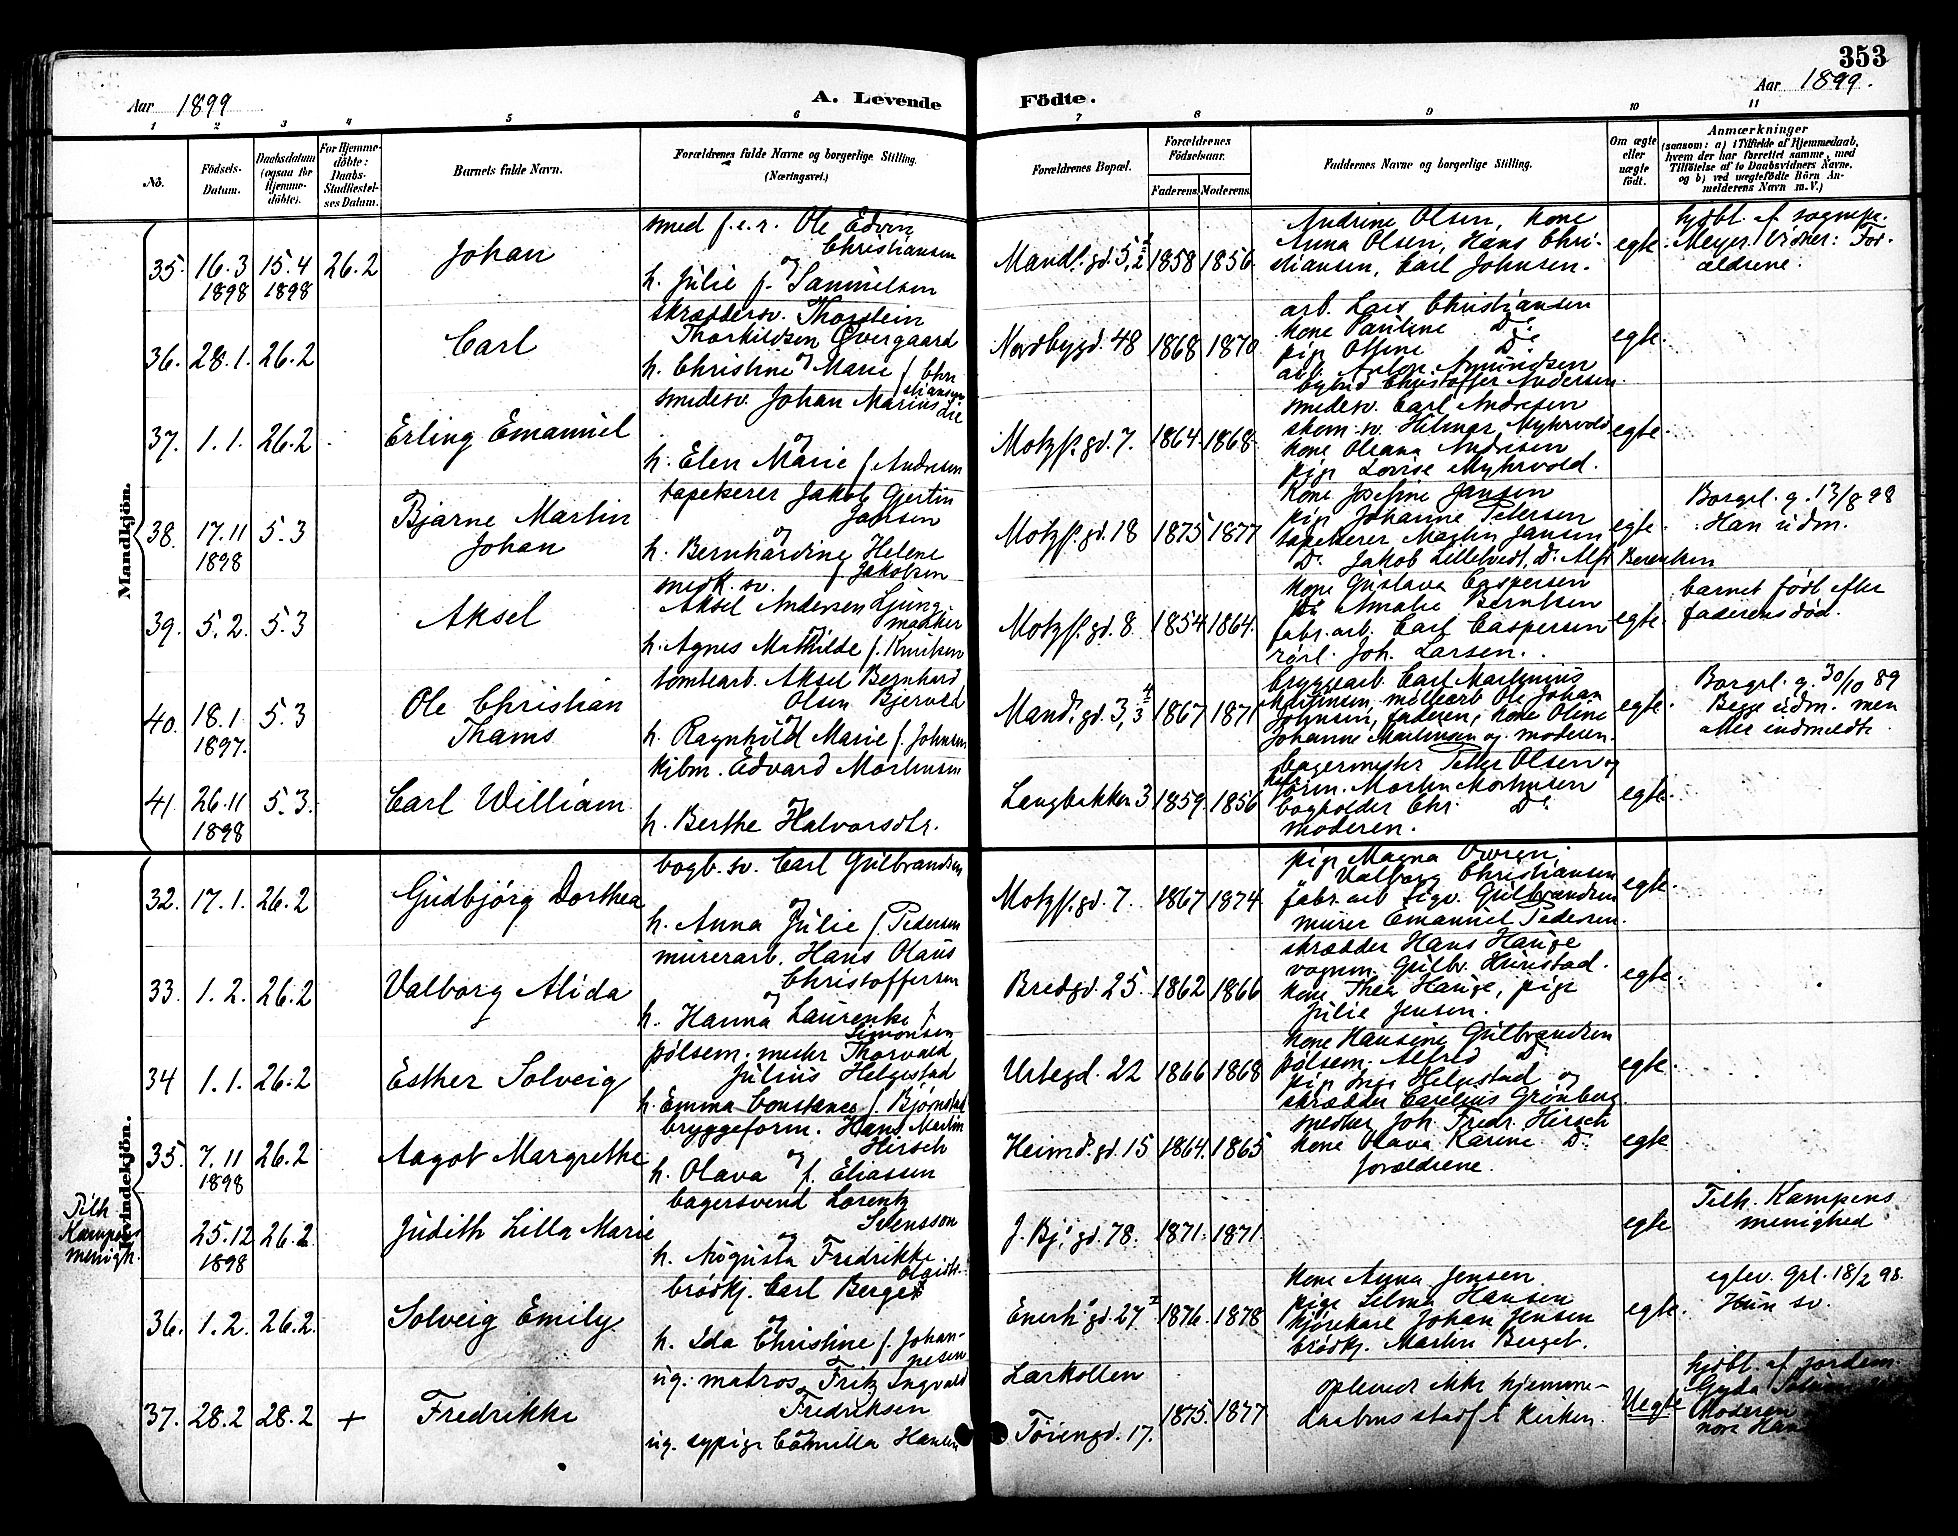 353
Aar 1899
A. Levende
Födte.
Aar 1899.
1 2 3 4 5 6 7 8 9 10 11
No.
Födsels-Datum.
Daabsdatum (ogsaa for Hjemme-döbte).
For Hjemme-döbte: Daabs-Stadfæstel-ses Datum.
Barnets fulde Navn.
Forældrenes fulde Navne og borgerlige Stilling. (Næringsvei.)
Forældrenes Bopæl.
Forældrenes Födselsaar.
Faderens. Moderens.
Faddernes Navne og borgerlige Stilling.
Om ægte eller uægte födt.
Anmærkninger
(saasom: a) i Tilfælde af Hjemmedaab, hvem der har forrettet samme, med Tilföielse af to Daabsvidners Navne, og b) ved uægtefödte Börn An-melderens Navn m. V.)
Mandkjön.
35. 16.3 1898 15.4 1898 26.2 Johan
smed f.e.r. Ole Edvin
Christiansen
og
h. Julie f. Samuelsen
Mandls.gd. 5, 1/2 1858 1856.
Andrine Olsen, kone
Anna Olsen, Hans Chri-
stiansen, Carl Johnsen.
egte.
hjdbt. af sognepr.
Meyer. Vidner: For-
ældrene.
36. 28.1. 26.2 Carl
skræddersv. Thorstein
Thorkildsen Overgaard
og
h. Christine Marie f. Chri
stiansen
Nordbygd. 48 1868 1870
arb. Lars Christiansen
kone Pauline Do
pige Ottine Do
arb. Anton Amundsen
bybud Christoffer Andersen.
egte.
37. 1.1. 26.2 Erling Emanuel
smedesv. Johan Marius
og
h. Elen Marie f. Andresen
Motzf.gd. 7. 1864 1868
smedesv. Carl Andresen
skom. sv. Hilmar Myhrvold
kone Oleana Andresen
pige Lovise Myhrvold.
egte.
38. 17.11 1898 5.3 Bjarne Martin
Johan
tapetserer Jakob Gjertin
Jansen
og
h. Bernhardine Helene
f. Jakobsen
Motzf.gd. 18 1875 1877
kone Josefine Jansen
pige Johanne Petersen
tapetserer Martin Jansen
Do Jakob Lilletvedt, Do Alf. Berentsen
egte.
Borgrl. g. 13/8 98
Han udm.
39. 5.2. 5.3 Aksel
snedk. sv.
Aksel Andersen Ljung-
og
h. Agnes Mathilde f. Knutsen
Motzf.gd. 8. 1854 1864.
kone Gustava Caspersen
Amalie Berntsen
fabr.arb. Carl Caspersen
rörl. Joh. Larsen.
egte.
barnet født efter
faderens död.
40. 18.1. 1897. 5.3 Ole Christian
Thams
tomtearb. Aksel Bernhard
Olsen Bjerved
og
h. Ragnhild Marie f. Johnsen
Mands.gd. 3, 1867 1871
bryggearb. Carl Martinius
møllearb. Ole Johan
Johnsen, faderen, kone Oline
Johanne Martinsen og moderen.
egte.
Borgrl. g. 30/10 89
Begge udm. men
atter indmeldt
41. 26.11 1898 5.3. Carl William
kjbm. Edvard Mortensen
og
h. Berthe Halvorsdtr.
Langbakken 3 1859. 1856
bagermester Petter Olsen og
form. Morten Mortensen
bogholder Chr. Do
moderen.
egte.
Kvindekjön.
32. 17.1. 26.2 Gudbjörg Dorthea
bogb. sv. Carl Gulbrandsen
og
h. Anna Julie f. Pedersen
Motzf.gd. 7. 1867 1874
pige Magna Owren,
Valborg Christiansen
fabr. arb. Sigv. Gulbrandsen
murer Emanuel Pedersen.
egte.
33. 1.2. 26.2 Valborg Alida
murerarb. Hans Olaus
Christoffersen
og
h. Hanna Laurentse f.
Simonsen
Bredgd. 25. 1862 1866
skrædder Hans Hauge
vognm. Gulbr. Hunstad.
kone Thea Hauge, pige
Julie Jensen.
egte.
34 1.1. 26.2 Esther Solveig
pölsem. mester Thorvald
Julius Helgestad
h. Emma Constance f. Bjørnstad
Urtegd. 22 1866 1868
kone Hansine Gulbrandsen
pölsem. Alfred Do
pige Inga Helgestad og
skrædder Carelius Grönberg.
egte.
35. 7.11 1898 26.2 Aagot Margrethe
bryggeform. Hans Martin
Hirsch
og
h. Olava f. Eliassen
Heimd.gd. 15 1864. 1865
snedker Joh. Fredr. Hirsch
kone Olava Karine Do
forældrene.
egte
Tilh.
Kampens
menigh.
25.12 1898 26.2 Judith Lilla Marie
bagersvend Lorentz
Svensson
og
h. Augusta Fredrikke
J. Bj.gd. 78. 1871. 1871.
egte
Tilh. Kampens
menighed
36. 1.2. 26.2. Solveig Emily
brödkj. Carl Berget
og
h. Ida Christine f. Johan-
nesen
Enerh.gd. 27 1876. 1878
kone Anna Jensen.
pige Selma Hansen
kjörekarl Johan Jensen
brödkj. Martin Berget.
egte.
egtev. Grl. 18/2 98.
Hun sv.
37. 28.2 28.2 + Fredrikke
ug. matros Fritz Ingvald
Fredriksen
ug. sypige Camilla Hansen
Larkollen
Töiengd. 17. 1875. 1877
oplevede ikke hjemme-
daabens stadf. i kirken.
Uegte
hjdbt. af jordem.
Gyda
Moderen